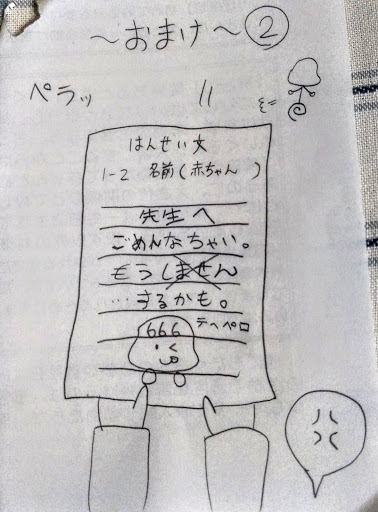 ～おまけ～②
ペラッ
はんせい文
1-2 名前(赤ちゃん )
先生へ
ごめんなちゃい。
もうしません
…するかも。
テヘペロ